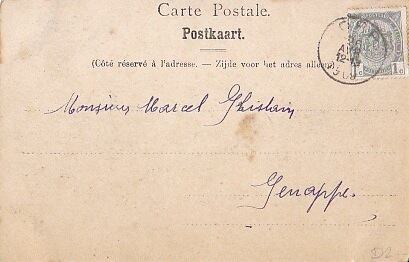 Carte Postale.
Postkaart.
(Côté réservé à l'adresse. — Zijde voor het adres alleen)
Monsieur Marcel Ghislain
Genappe.
1c
D2